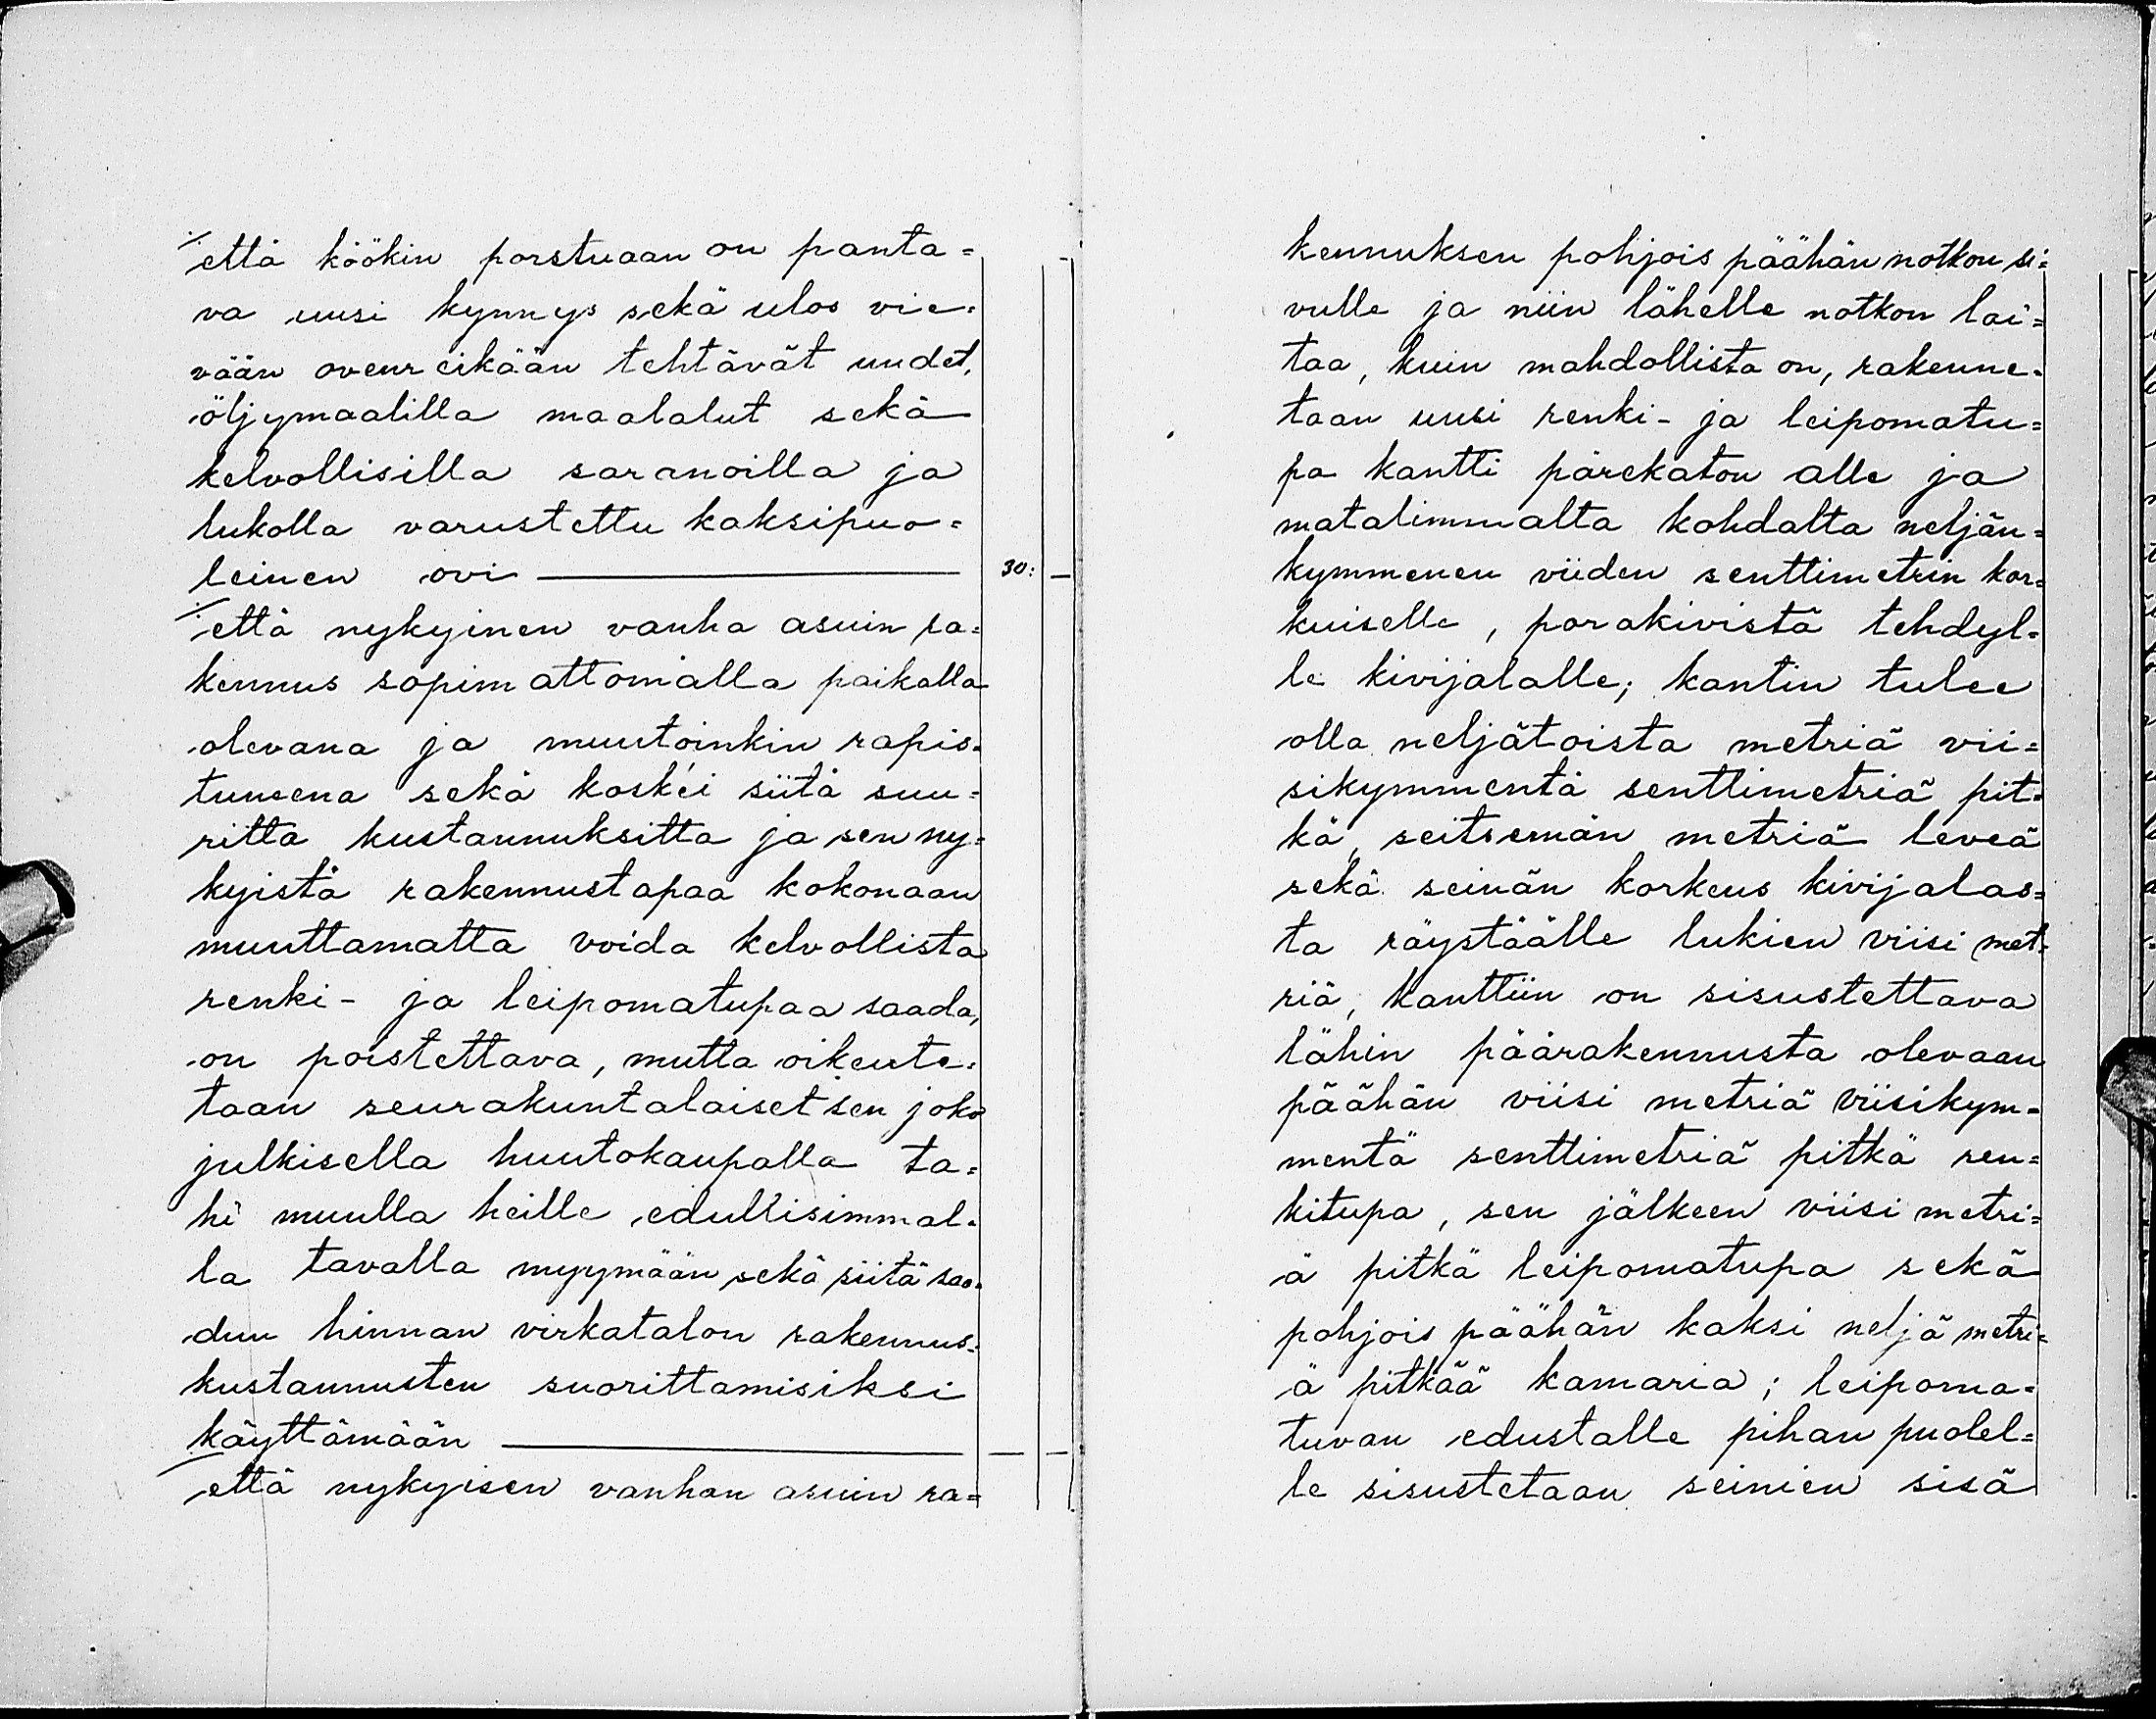 että köökin porstuaan on panta=
va uusi kynnys sekä ulos vie=
vään ovenreikään tehtävät uudet,
öljymaalilla maalalut sekä
kelvollisilla saranoilla ja
lukolla varustettu kaksipuo=
leinen ovi — 30: —
että nykyinen vanha asuin ra=
kennus sopimattomalla paikalla
olevana ja muutoinkin rapis=
tuneena sekä kosk'ei siitä suu=
ritta kustannuksitta ja sen ny=
kyistä rakennustapaa kokonaan
muuttamatta voida kelvollista
renki- ja leipomatupaa saada,
on poistettava, mutta oikeute=
taan seurakuntalaiset sen joko
julkisella huutokaupalla ta=
hi muulla heille edullisimmal=
la tavalla myymään sekä siitä saa=
dun hinnan virkatalon rakennus=
kustannusten suorittamisiksi
käyttämään — — —
että nykyisen vanhan asuin ra=
kennuksen pohjois päähän notkon si=
vulle ja niin lähelle notkon lai=
taa, kuin mahdollista on, rakenne=
taan uusi renki- ja leipomatu=
pa kantti pärekaton alle ja
matalimmalta kohdalta neljän=
kymmenen viiden senttimetrin kor=
kuiselle, porakivistä tehdyl=
le kivijalalle; kantin tulee
olla neljätoista metriä vii=
sikymmentä senttimetriä pit=
kä, seitsemän metriä leveä
sekä seinän korkeus kivijalas=
ta räystäälle lukien viisi met=
riä, kanttiin on sisustettava
lähin päärakennusta olevaan
päähän viisi metriä viisikym=
mentä senttimetriä pitkä ren=
kitupa, sen jälkeen viisi metri=
ä pitkä leipomatupa sekä
pohjois päähän kaksi neljä metri=
ä pitkää kamaria; leipoma=
tuvan edustalle pihan puolel=
le sisustetaan seinien sisä